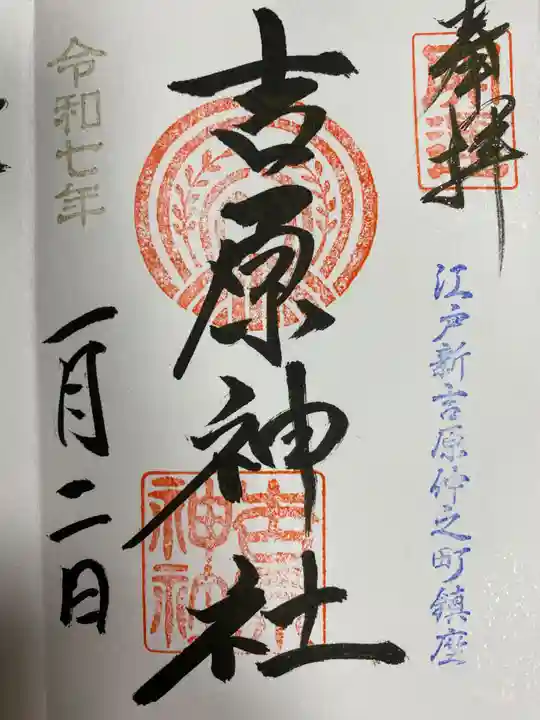 奉拝
江戸新吉原仲之町鎮座
吉原神社
令和七年
一月二日